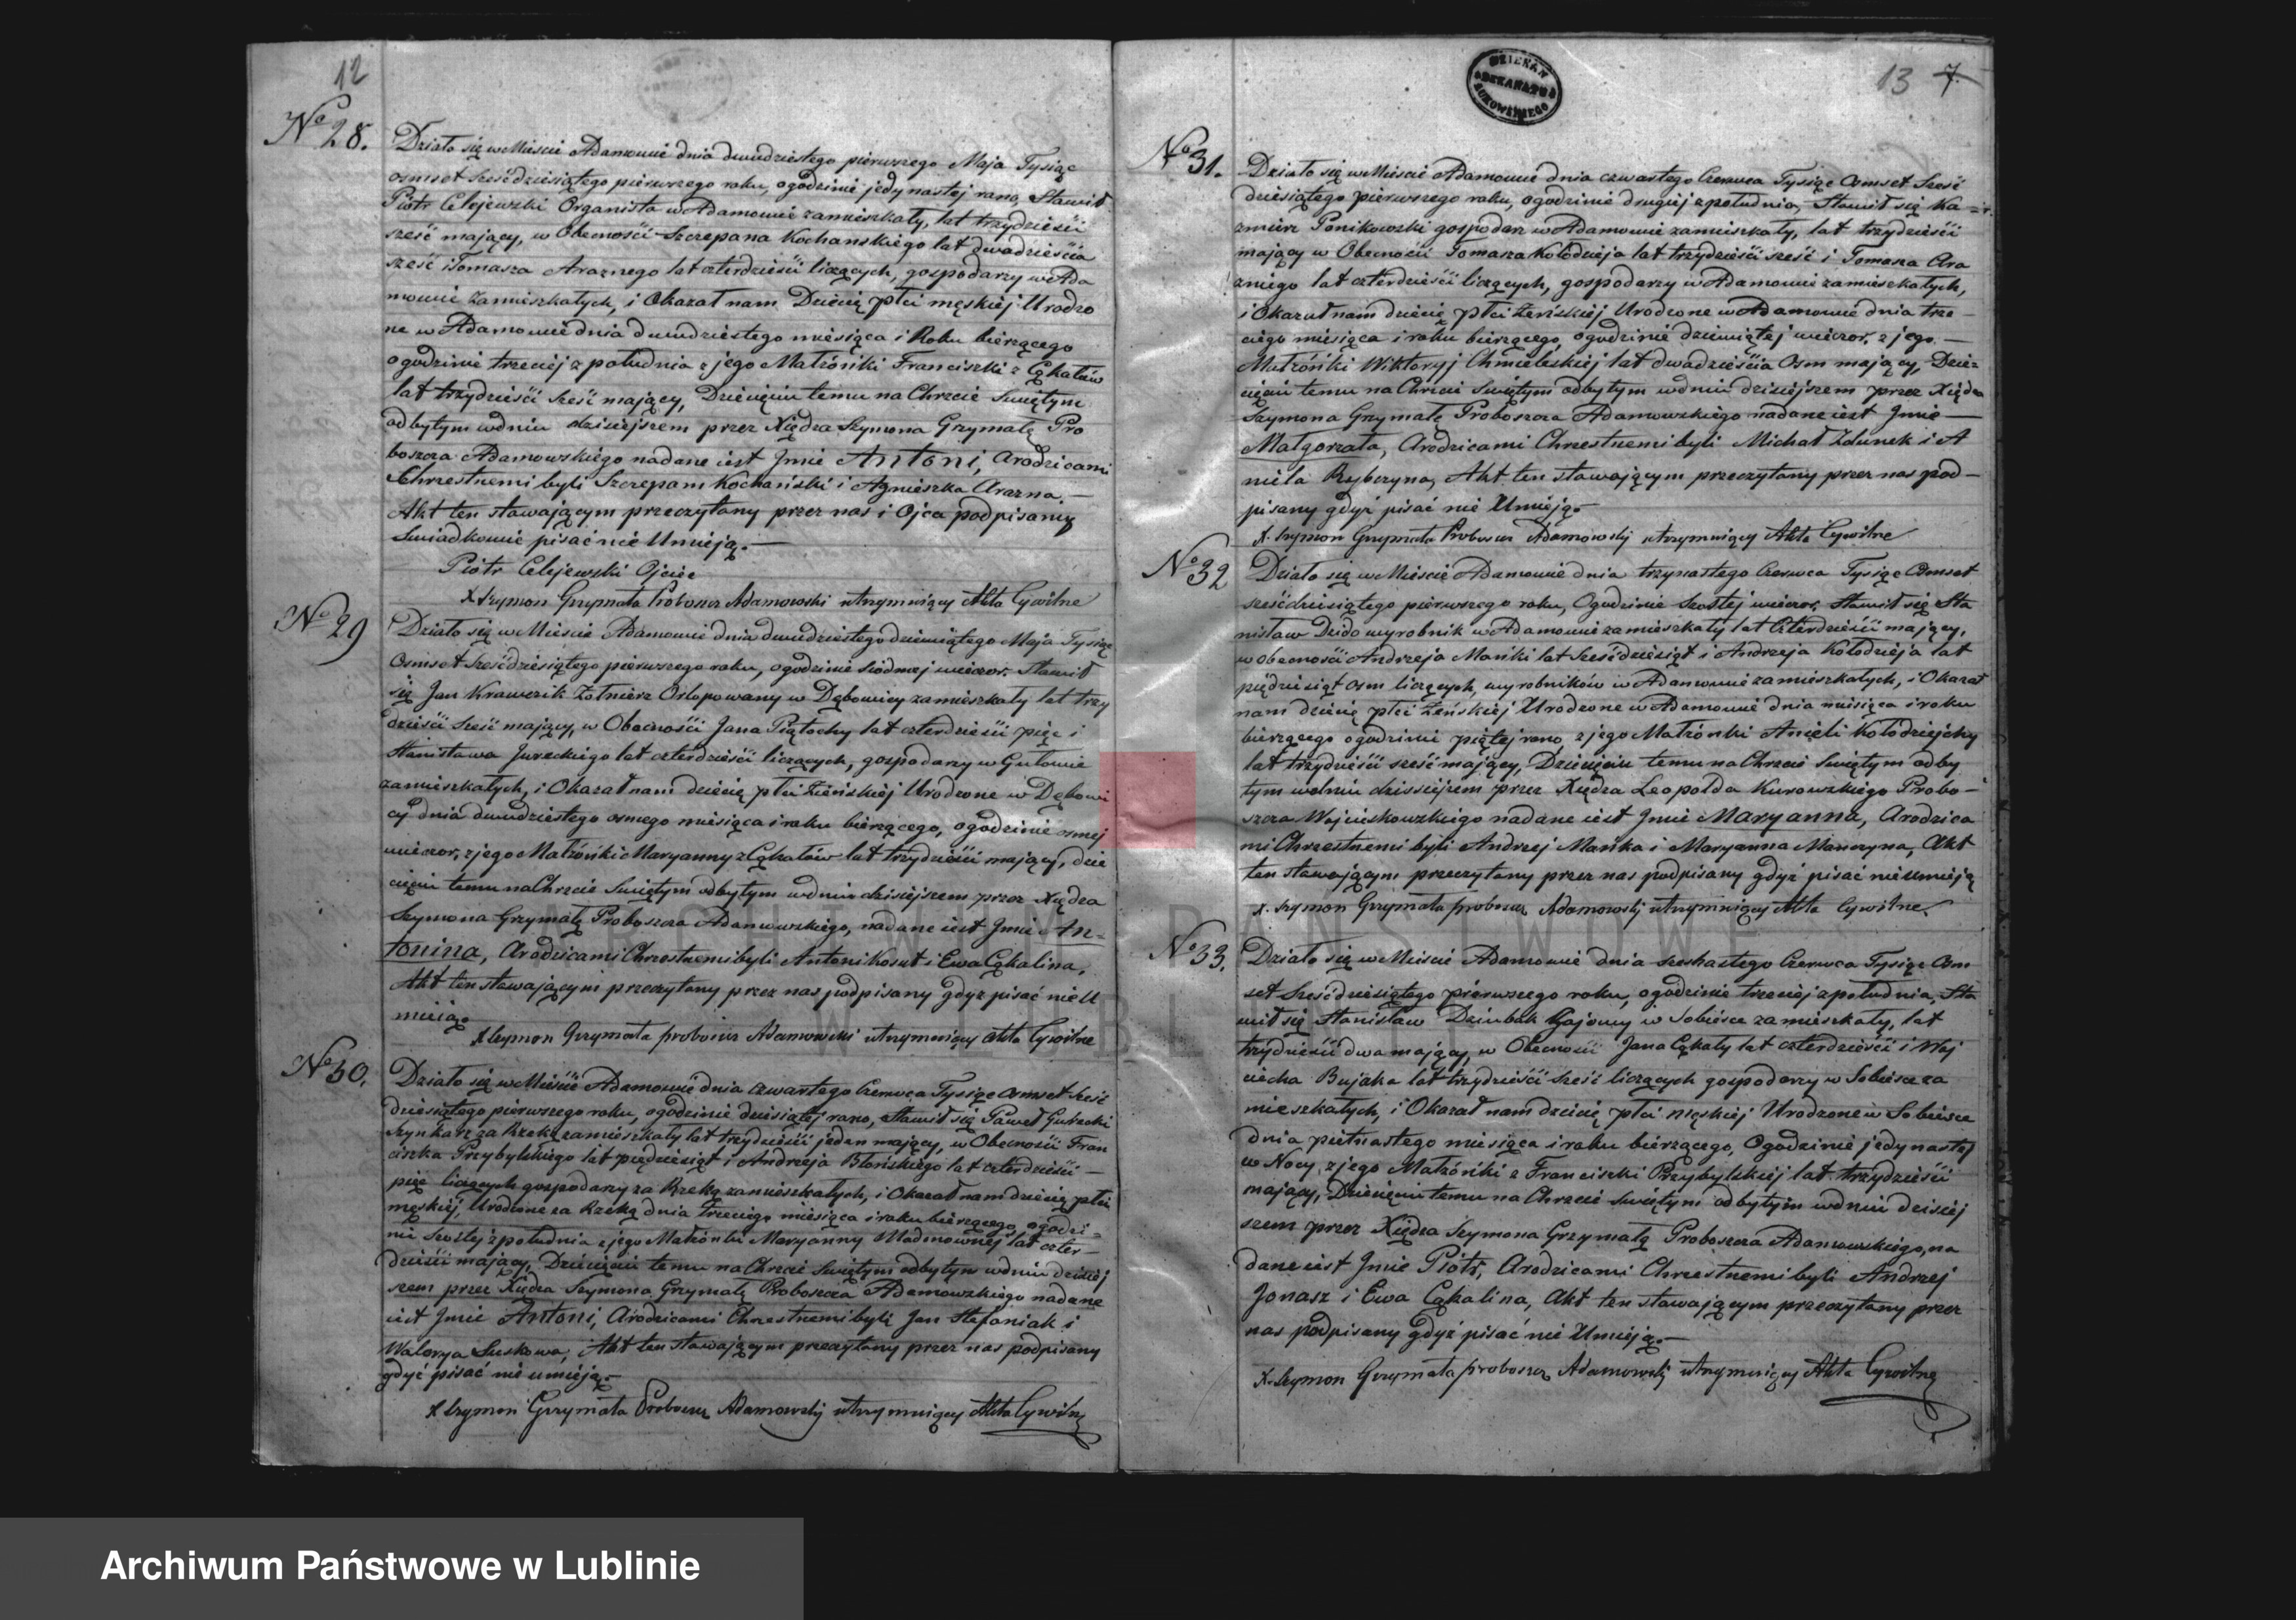 12
No 28.
Działo się w Mieście Adamowie dnia dwudziestego pierwszego Maja Tysiąc
osmset sześćdziesiątego pierwszego roku, o godzinie jedynastej rano, Stawił
Piotr Celejewski Organista w Adamowie zamieszkały, lat trzydzieści
sześć mający, w Obecności Szczepana Kochanskiego lat dwadzieścia
sześć i Tomasza Araznego lat czterdzieści liczących, gospodarzy w Ada
mowie Zamieszkałych, i Okazał nam Dziecię płci męskiej Urodzo
ne w Adamowie dnia dwudziestego miesiąca i Roku bierzącego
o godzinie trzeciej z południa z jego Małżonki Franciszki z Cąkałów
lat trzydzieści sześć mający, Dziecięciu temu na Chrzcie Swiętym
odbytym w dniu dzisiejszem przez Xiędza Szymona Grzymałę Pro
boszcza Adamowskiego nadane iest Jmie Antoni, a rodzicami
Chrzestnemi byli Szczepam Kochański i Agnieszka Arazna. —
Akt ten stawającym przeczytany przez nas i Ojca podpisany
Swiadkowie pisać nie Umieją. —
Piotr Celejewski Ojciec
X Szymon Grzymała Proboszcz Adamowski utrzymuiący Akta Cywilne
No 29
Działo się w Mieście Adamowie dnia dwudziestego dziewiątego Maja Tysiąc
Osmset Sześćdziesiątego pierwszego roku, o godzinie siodmej wieczor. Stawił
się Jan Krawczik Zołnierz Orlopowany w Dębowicy zamieszkały lat trzy
dzieści sześć mający, w Obecności Jana Piątochy lat czterdzieści pięc i
Stanisława Jureckiego lat czterdzieści liczących, gospodarzy w Gułowie
zamieszkałych, i Okazał nam dziecię płci Zieńskiej Urodzone w Dębowi
cy dnia dwudziestego osmego miesiąca i roku bierzącego, o godzinie osmej
wieczor, z jego Małżońki Maryanny z Cąkałów lat trzydzieści mający, dzie
cięciu temu na Chrzcie Swiętym odbytym w dniu dzisiejszem przez Xiędza
Szymona Grzymałę Proboszcza Adamowskiego, nadane iest Jmie An=
tonina, a rodzicami Chrzestnemi byli Antoni Kosut i Ewa Cąkalina,
Akt ten stawającym przeczytany przez nas podpisany gdyż pisać nie U
mieią.
X Szymon Grzymała proboszcz Adamowski utrzymuiący Akta Cywilne
No 30.
Działo się w Mieście Adamowie dnia czwartego Czerwca Tysiąc Osmset Sześć
dziesiątego pierwszego roku, o godzinie dziesiątej rano, Stawił się Paweł Gurecki
Szynkarz za Rzeką zamieszkały lat trzydzieści jeden mający, w Obecności Fran
ciszka Przybylskiego lat pięćdziesiąt i Andrzeja Błońskiego lat czterdzieści —
pięc liczących gospodarzy za Rzeką zamieszkałych, i Okazał nam dziecię płci
męskiej, Urodzone za Rzeką dnia trzeciego miesiąca i roku bierzącego o godzi=
nie szostej z południa z jego Małżonki Maryanny lat czter—
dzieści mający, Dziecięciu temu na Chrzcie Swiętym odbytym w dniu dzisiej
szem przez Xiędza Szymona Grzymałę Proboszcza Adamowskiego nadane
iest Jmie Antoni, a rodzicami Chrzestnemi byli Jan Stefaniak i
Waleryia Suskowa, Akt ten stawającym przeczytany przez nas podpisany
gdyż pisać nie umieją.—
X Szymon Grzymała Proboszcz Adamowskj utrzymuiący Akta Cywilne
DZIEKAN DEKANATU ŁUKOWSKIEGO
13 7
No 31.
Działo się w Mieście Adamowie dnia czwartego Czerwca Tysiąc Osmset Sześć
dziesiątego pierwszego roku, o godzinie drugiej z południa, Stawił się Ka=
zmierz Ponikowski gospodarz w Adamowie zamieszkały, lat trzydzieści
mający w Obecności Tomasza Kołodzieja lat trzydzieści sześć i Tomasza Ara
znego lat czterdzieści liczących, gospodarzy w Adamowie zamieszkałych,
i Okazał nam dziecię płci Zeńskiej Urodzone w Adamowie dnia trze—
ciego miesiąca i roku bierzącego, o godzinie dziewiątej wieczor, z jego —
Małżońki Wiktoryj Chmielewskiej lat dwadzieścia Osm mający, Dzie=
cięciu temu na Chrzcie Swiętym odbytym w dniu dzisiejszem przez Xiędza
Szymona Grzymałę Proboszcza Adamowskiego nadane iest Jmie —
Małgorzata, a rodzicami Chrzestnemi byli Michał Zdunek i A
niela Rybczyna, Akt ten stawającym przeczytany przez nas pod—
pisany gdyż pisać nie Umieją.
X. Szymon Grzymała Proboszcz Adamowskj utrzymuiący Akta Cywilne
No 32
Działo się w Mieście Adamowie dnia trzynastego Czerwca Tysiąc Osmset
sześćdziesiątego pierwszego roku, O godzinie szostej wieczor, Stawił się Sta
nisław Dzido wyrobnik w Adamowie zamieszkały lat Czterdzieści mający,
w obecności Andrzeja Mańki lat Sześćdziesiąt i Andrzeja Kołodzieja lat
pięćdziesiąt osm liczących, wyrobników w Adamowie zamieszkałych, i Okazał
nam dziecię płci Zeńskiej Urodzone w Adamowie dnia miesiąca i roku
bierzącego o godzinie piątej rano z jego Małżonki Anieli Kołodziejchy
lat trzydzieści sześć mający, Dziecięciu temu na Chrzcie Swiętym odby
tym w dniu dzissiejszem przez Xiędza Leopolda Kurowskiego Probo—
szcza Wojcieskowskiego nadane iest Jmie Maryanna, a rodzica
mi Chrzestnemi byli Andrzej Mańka i Maryanna Manczyna, Akt
ten stawającym przeczytany przez nas podpisany gdyż pisać nie umieją
X. Szymon Grzymała proboszcz Adamowskj utrzymuiący Akta Cywilne
No 33.
Działo się w Mieście Adamowie dnia szesnastego Czerwca Tysiąc Osm
set Sześćdziesiątego pierwszego roku, o godzinie trzeciej z południa, Sta
wił się Stanisław Dziubak Gajowy w Sobisce zamieszkały, lat
trzydzieści dwa mający, w Obecności Jana Cąkały lat czterdzieści i Woj
ciecha Bujaka lat trzydzieści sześć liczących gospodarzy w Sobisce za
mieszkałych, i Okazał nam dziecię płci męskiej Urodzone w Sobisce
dnia pietnastego miesiąca i roku bierzącego, O godzinie jedynastej
w Nocy, z jego Małżońki z Franciszki Przybylskiej lat trzydzieści
mający, Dziecięciu temu na Chrzcie Swiętym odbytym w dniu dzisiej
szem przez Xiędza Szymona Grzymałę Proboszcza Adamowskiego, na
dane iest Jmie Piotr, a rodzicami Chrzestnemi byli Andrzej
Jonasz i Ewa Cąkalina, Akt ten stawającym przeczytany przez
nas podpisany gdyż pisać nie Umieją.—
X. Szymon Grzymała proboszcz Adamowskj utrzymuiący Akta Cywilne
ARCHIWUM PAŃSTWOWE
W LUBLINIE
Archiwum Państwowe w Lublinie